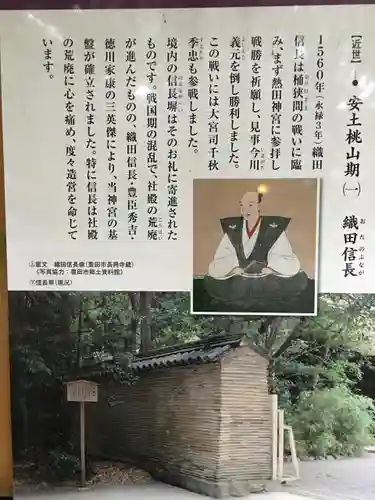 【近世】
● 安土桃山期㈠ 織田信長
おだのぶなが
1560年(永禄3年)織田
信長は桶狭間の戦いに臨
み、まず熱田神宮に参拝し
戦勝を祈願し、見事今川
義元を倒し勝利しました。
この戦いには大宮司千秋
季忠も参戦しました。
境内の信長塀はそのお礼に寄進された
ものです。戦国期の混乱で、社殿の荒廃
が進んだものの、織田信長・豊臣秀吉・
徳川家康の三英傑により、当神宮の基
盤が確立されました。特に信長は社殿
の荒廃に心を痛め、度々造営を命じて
います。
㊤重文 織田信長像(豊田市長興寺蔵)
(写真協力:豊田市郷土資料館)
㊦信長塀(現況)